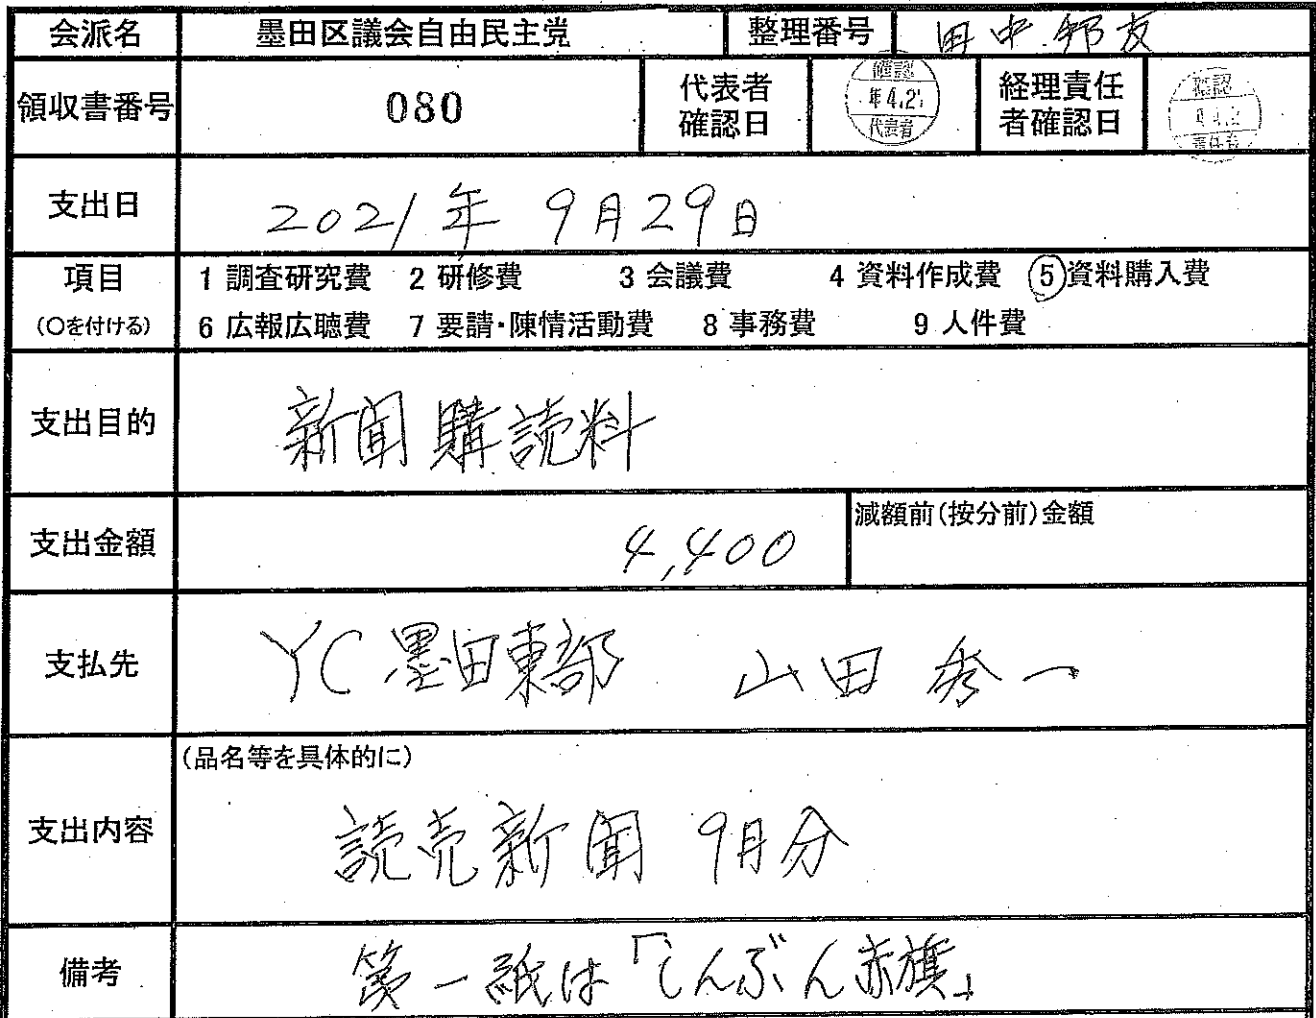 会派名 墨田区議会自由民主党 整理番号 田中邦友
領収書番号 080 代表者確認日 確認 年4.2 代表者 経理責任者確認日 確認
支出日 2021年 9月29日
項目 1 調査研究費 2 研修費 3 会議費 4 資料作成費 5 資料購入費
(○を付ける) 6 広報広聴費 7 要請・陳情活動費 8 事務費 9 人件費
支出目的 新聞購読料
支出金額 4,400 減額前(按分前)金額
支払先 YC墨田東部 山田秀一
(品名等を具体的に)
支出内容 読売新聞 9月分
備考 第一紙は「しんぶん赤旗」